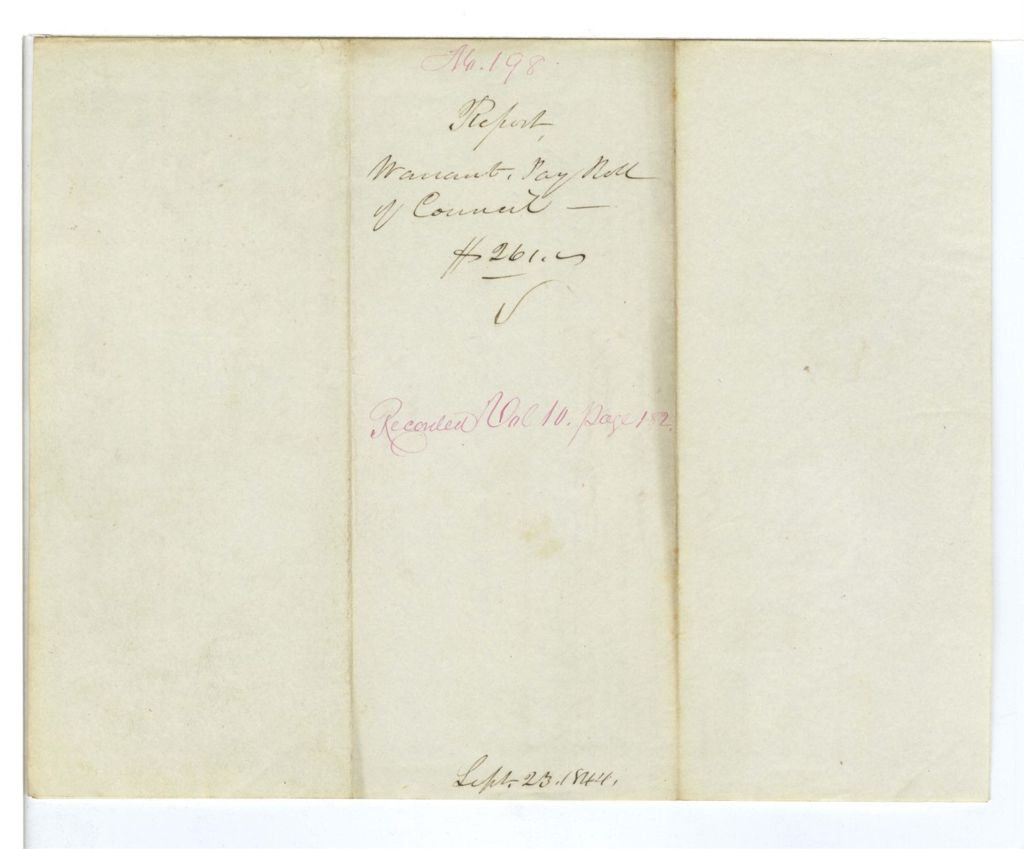 No. 198.
Report,
Warrant. Pay Roll
of Council —
$261.
Recorded Vol 10. Page 182.
Sept. 23. 1844.